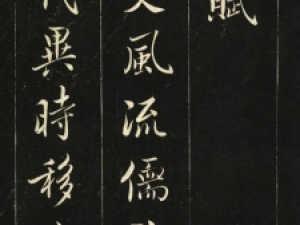 賦
文風流儒
代異時移